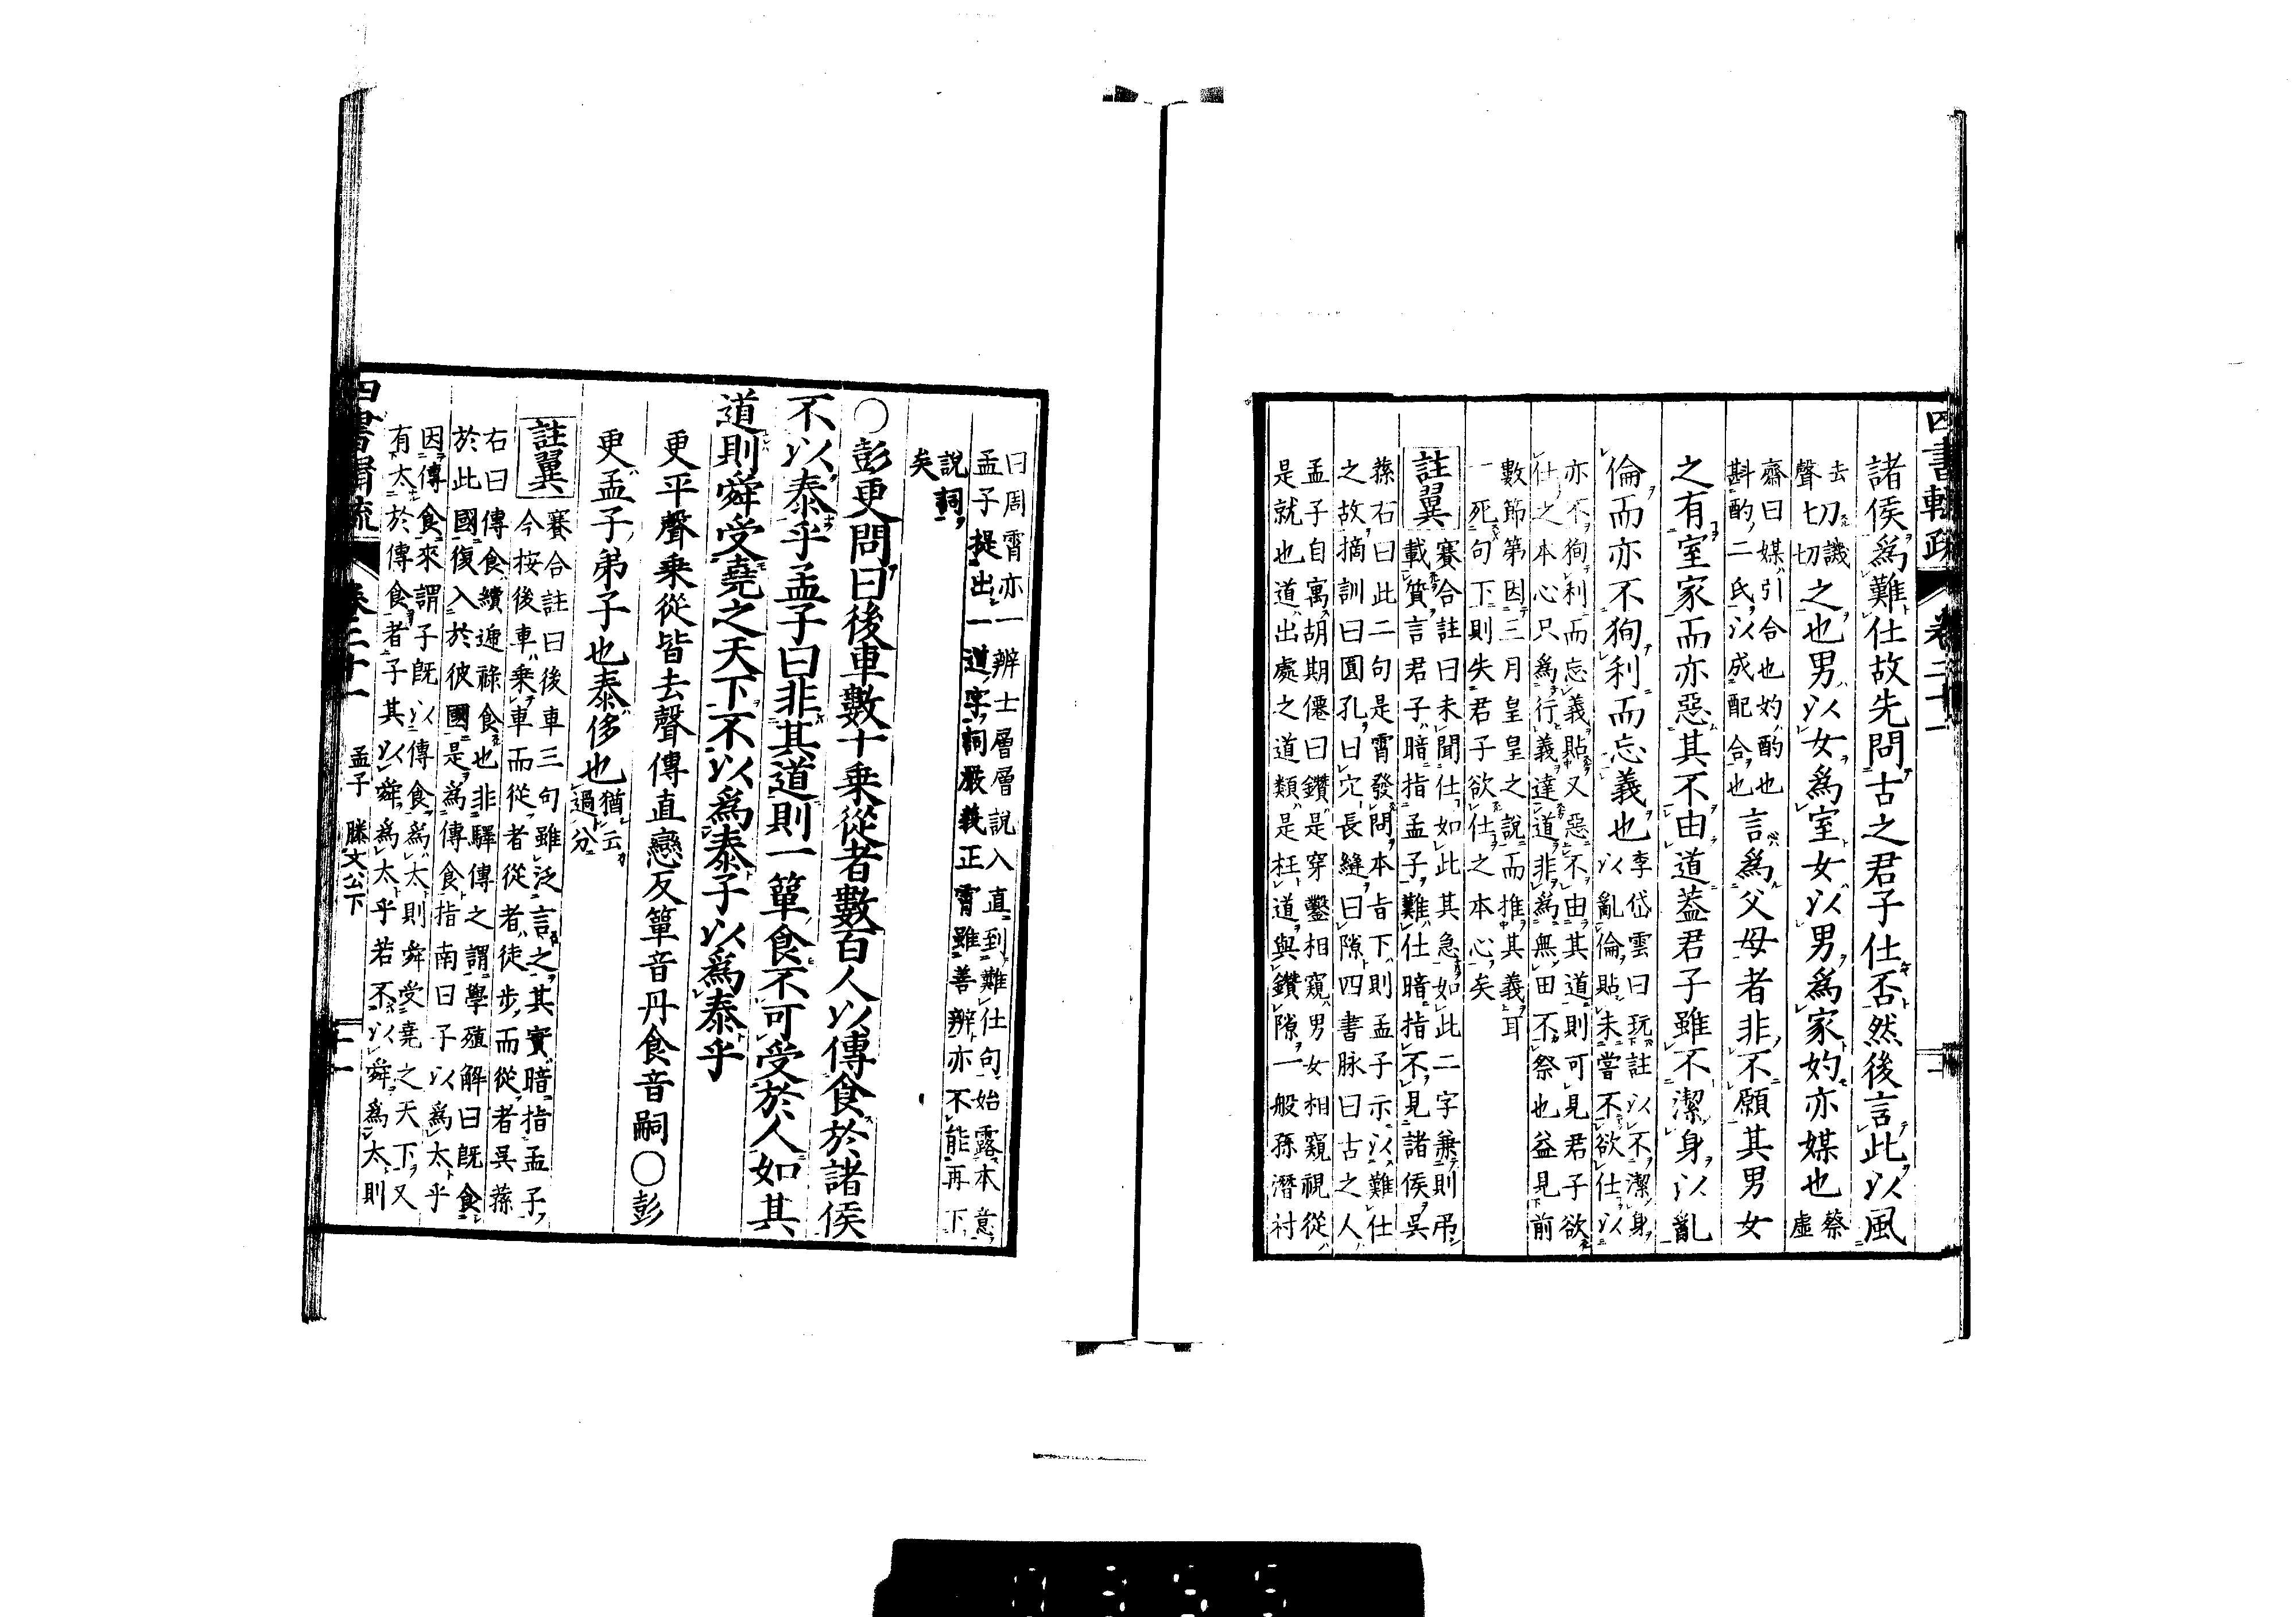 四書輯疏 卷二十一
諸侯爲難仕故先問古之君子仕否然後言此以風
去刀譏
聲切切
之也男以女爲室女以男爲家妁亦媒也
蔡
虛
齋曰媒引合也妁酌也
斟酌二氏以成配合也
言爲父母者非不願其男女
之有室家而亦惡其不由道蓋君子雖不潔身以亂
倫而亦不狥利而忘義也
李岱雲曰玩註以不潔身
以亂倫貼未嘗不欲仕以
亦不狥利而忘義貼又惡不由其道則可見君子欲
仕之本心只爲行義達道非爲無田不祭也益見前
數節第因三月皇皇之說而推其義耳
一死句下則失君子欲仕之本心矣
註翼
賽合註曰未聞仕如此其急如此二字兼則弔
載質言君子暗指孟子難仕暗指不見諸侯吳
蓀右曰此二句是霄發問本旨下則孟子示以難仕
之故摘訓曰圓孔曰穴長縫曰隙四書脉曰古之人
孟子自寓胡期僊曰鑽是穿鑿相窺男女相窺視從
是就也道出處之道類是枉道與鑽隙一般孫潛村
曰周霄亦一辨士層層說入直到難仕句始露本意
孟子提出一道字詞嚴義正霄雖善辨亦不能再下
說詞
矣
○彭更問曰後車數十乗從者數百人以傳食於諸侯
不以泰乎孟子曰非其道則一簞食不可受於人如其
道則舜受堯之天下不以爲泰子以爲泰乎
更平聲乗從皆去聲傳直戀反簞音丹食音嗣○彭
更孟子弟子也泰侈也
猶云
過分
註翼
賽合註曰後車三句雖泛言之其實暗指孟子
今按後車乗車而從者從者徒步而從者吳蓀
右曰傳食續遞祿食也非驛傳之謂學殖解曰旣食
於此國復入於彼國是爲傳食指南曰子以爲太乎
因傳食來謂子旣以傳食爲太則舜受堯之天下又
有太於傳食者子其以舜爲太乎若不以舜爲太則
四書輯疏 卷二十一 孟子 滕文公下 十一